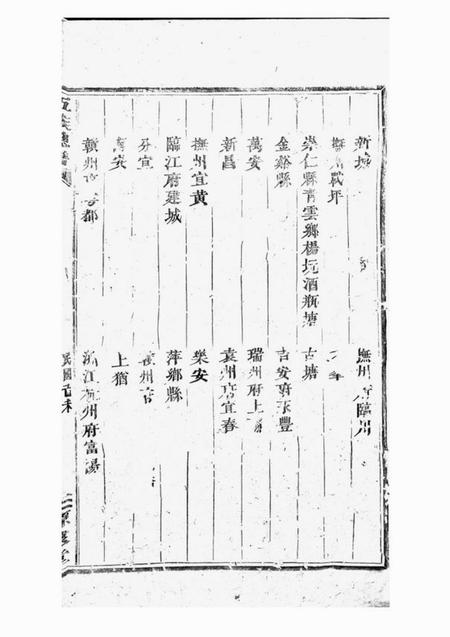 新城
撫州府臨川
咸坪
崇仁縣青雲鄉楊坊酒瓶塘
古塘
金谿縣
吉安府永豐
萬安
瑞州府上
新昌
袁州府宜春
撫州宜黄
樂安
臨江府建城
萍鄉縣
分宜
州府
安
上猶
贛州府都
浙江杭州府富陽
民國